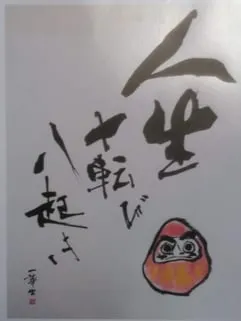 人生
七転び
八起き